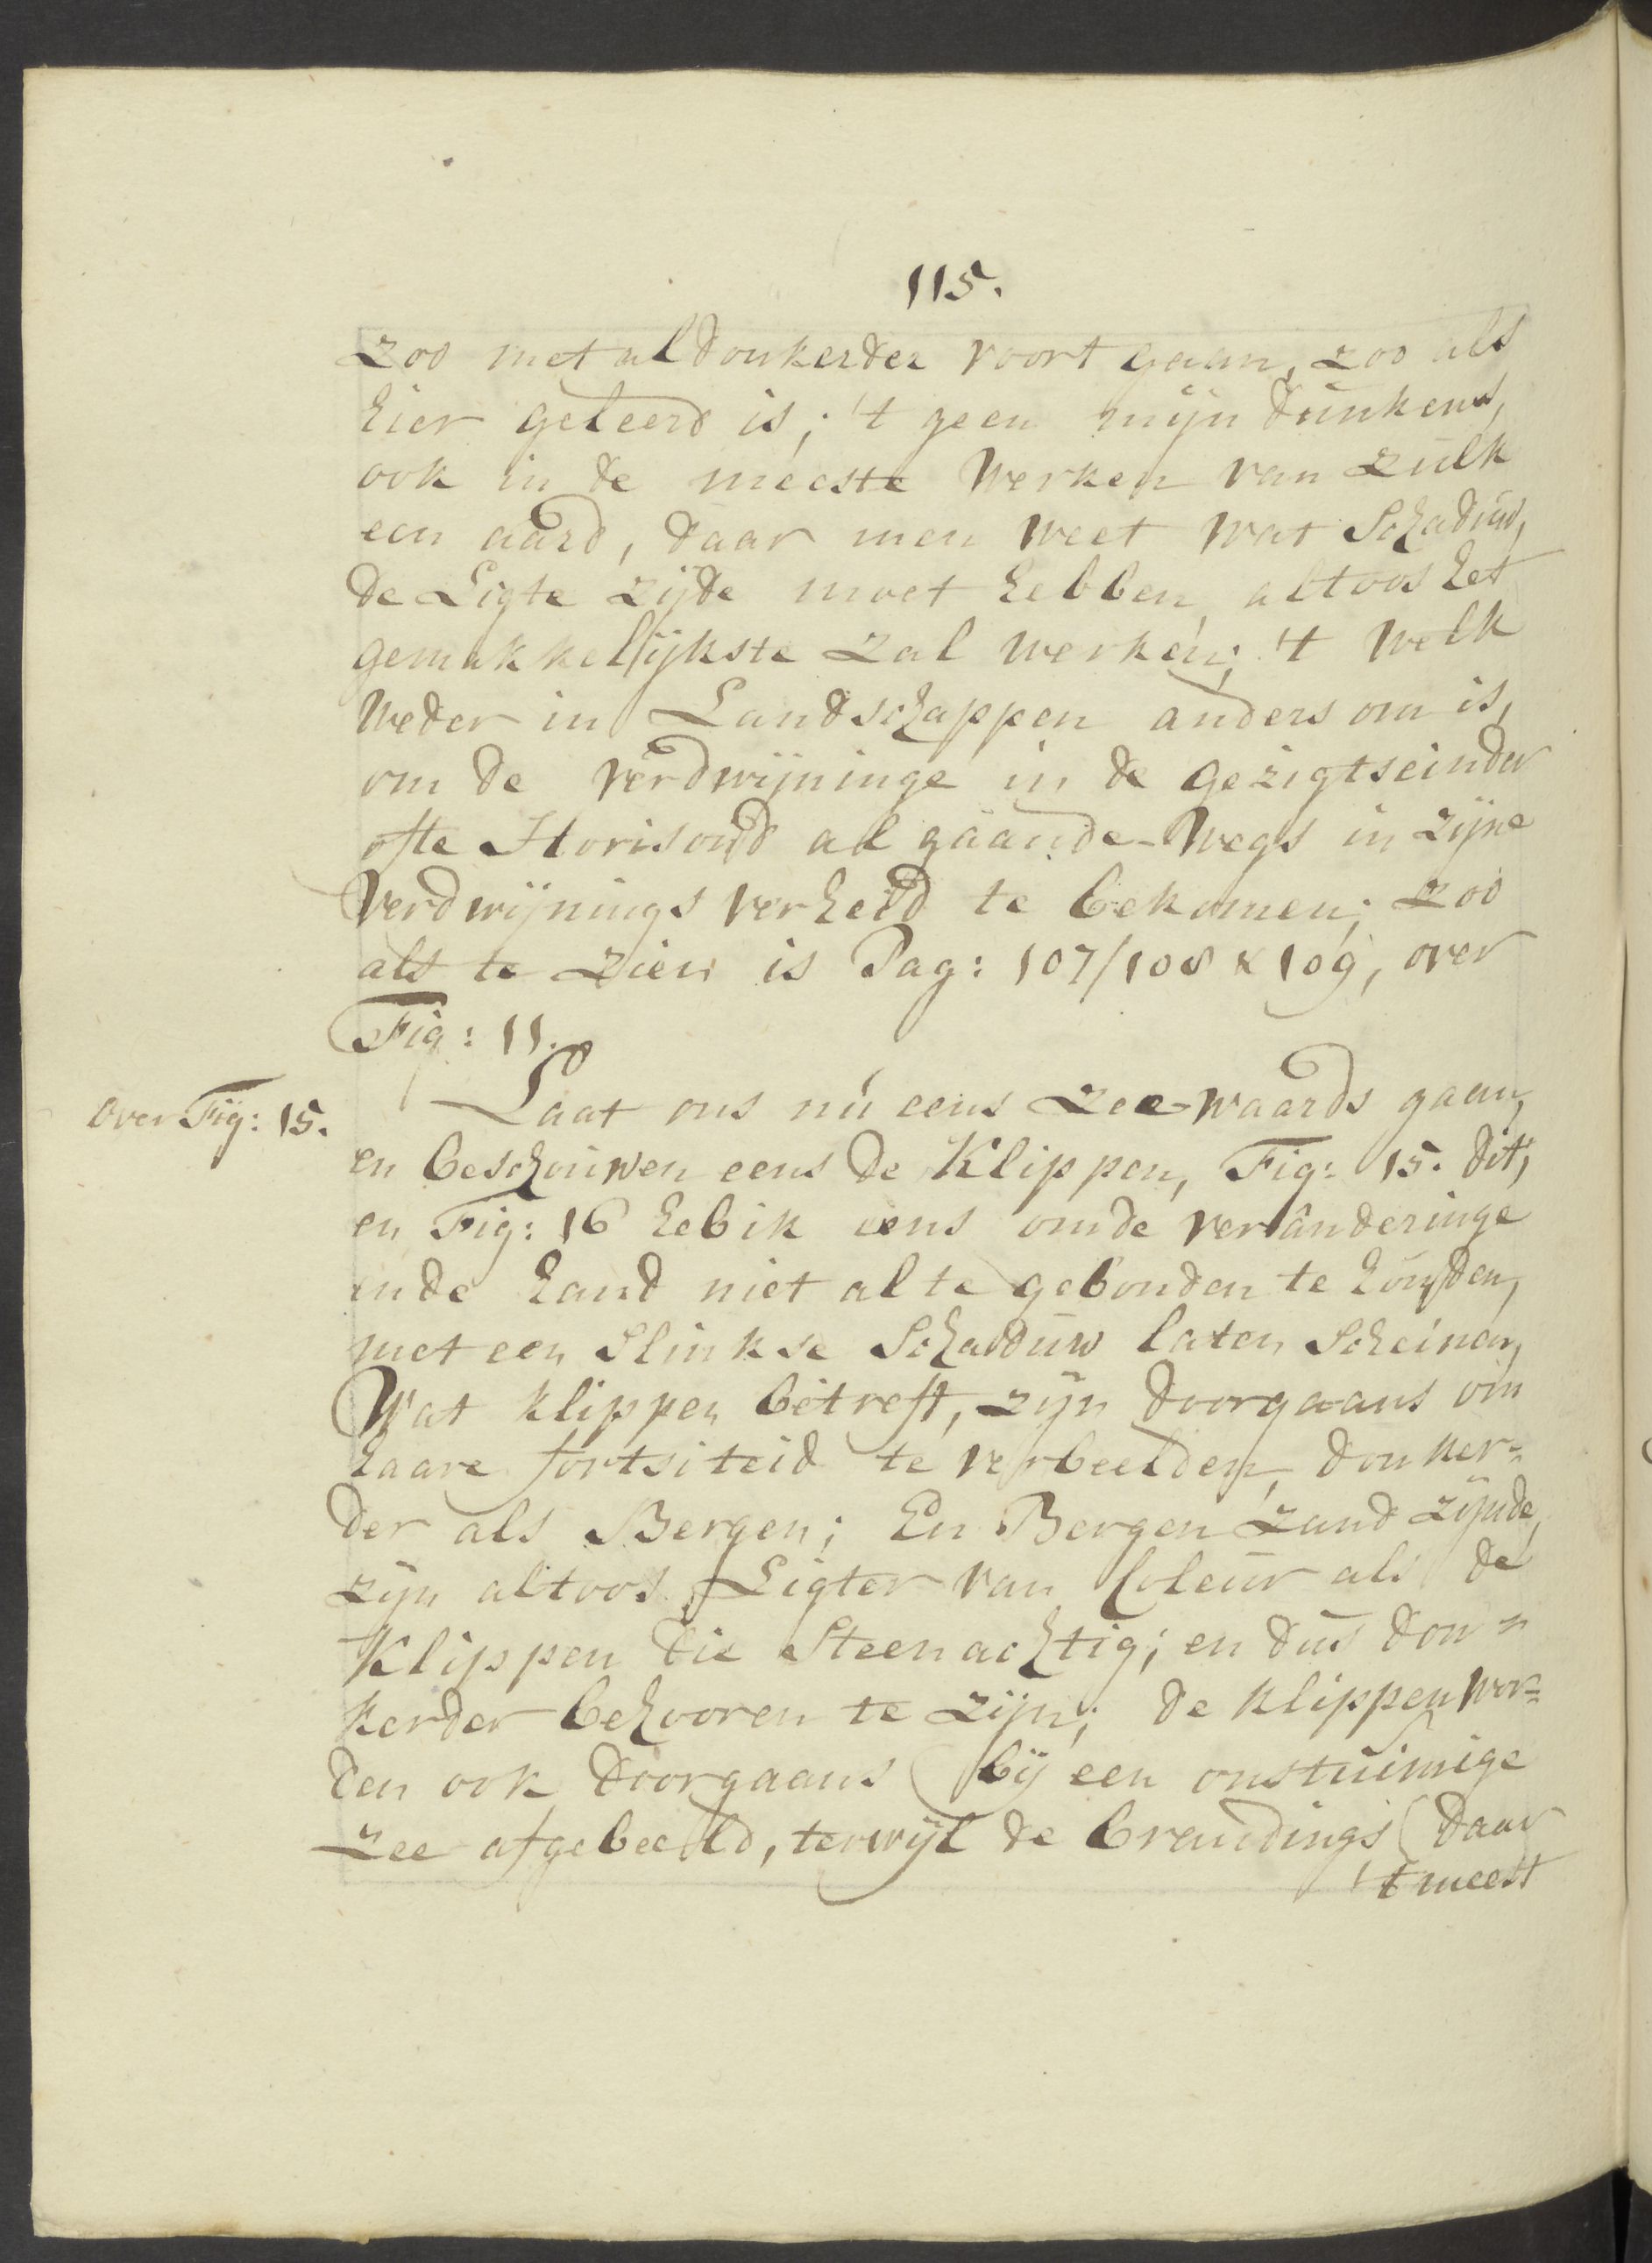 115.
zoo met al donkerder voort gaan, zoo als
hier geleerd is; 't geen mijn dunkens,
ook in de meeste Werken van zulk
een aard, daar men weet wat Schaduw,
de Ligte zijde moet hebben, altoos het
gemakkelijkste zal werken; 't welk
weder in Landschappen anders om is,
om de verdwijninge in de gezigtseinder
ofte Horisond al gaande-wegs in zijne
verdwijnings verheid te bekomen; zoo
als te zien is Pag: 107/108 & 109, over
Fig: 11.
Over Fig: 15.
Laat ons nú eens zee-waards gaan,
en beschouwen eens de Klippen, Fig: 15. dit,
en Fig: 16 heb ik eens om de veranderinge
en de hand niet al te gebonden te houden,
met een Slinkse Schaduw laten Scheinen,
Wat klippen betreft, zijn doorgaans om
haare fortsiteid te verbeelden, donker=
der als Bergen; En Bergen zand zijnde,
zijn altoos Ligter van Coleur als de
Klippen die Steenachtig; en dus don=
kerder behooren te zijn; de klippen wor=
den ook doorgaans bij een onstuimige
zee afgebeeld, terwijl de brandings daar
't meest